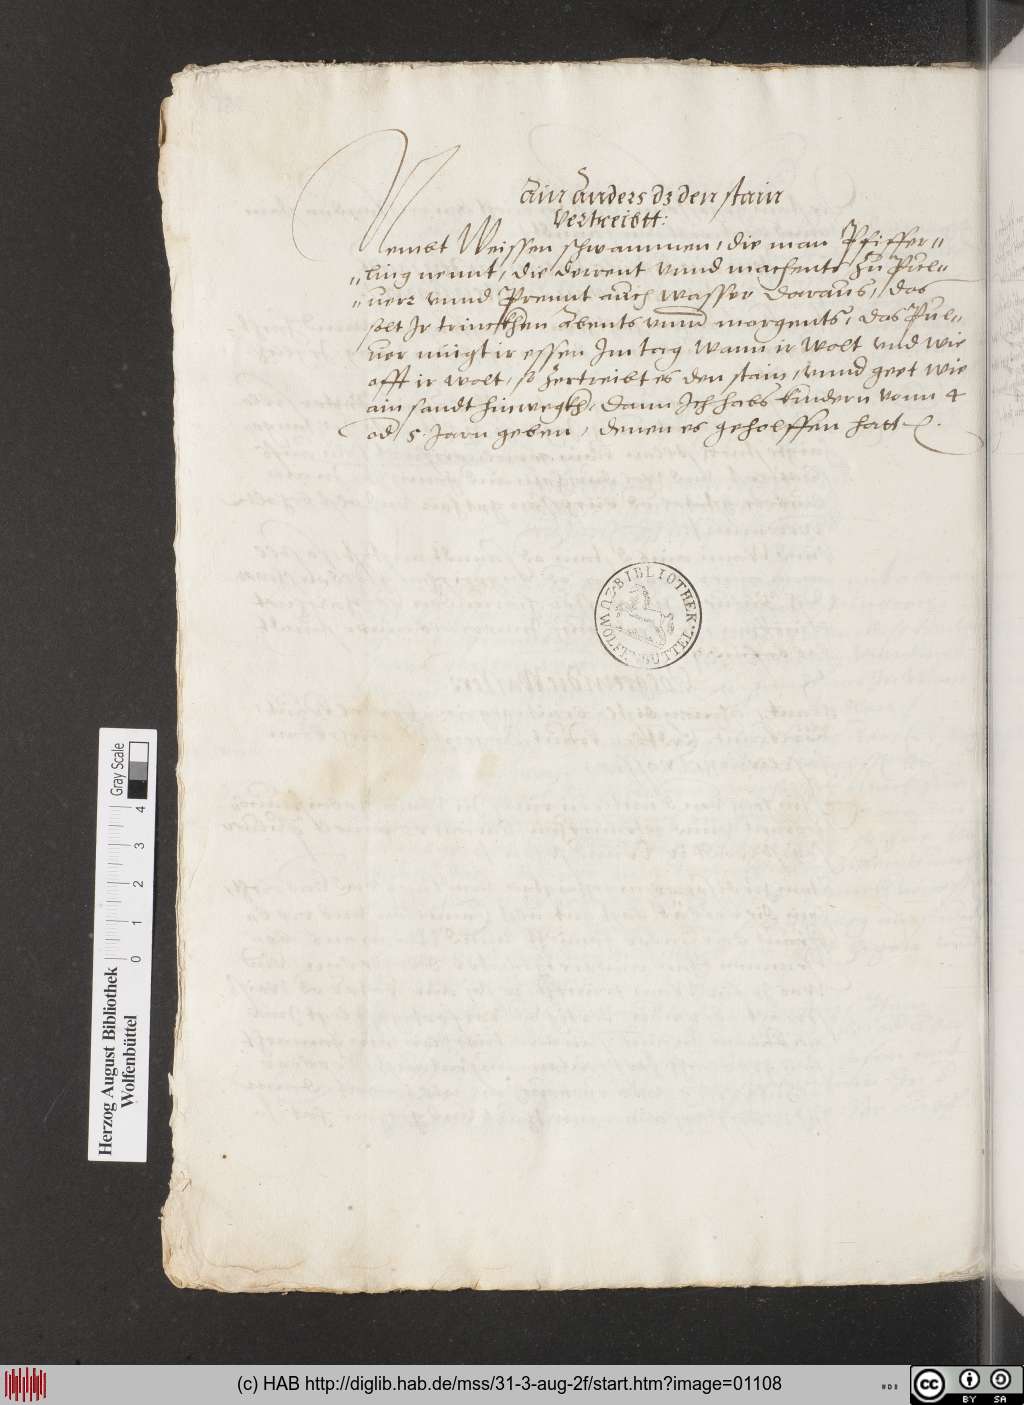 Ain Anders dz den stain
Vertreibtt:
Nembt Weissen schwammen, die man Pfiffer=
=ling nennt, die derrent unnd machents zu Pul=
=uerr unnd Prennt auch wasser daraus, das
solt Jr trinckhen Abents unnd morgents, das Pul=
uer mügt ir essen Im tag wann ir wolt und wie
offt ir wolt, so zertreibt es den stain, unnd geet wie
ain sandt hinwegkh, dann Ich habs kindern vonn 4
od 5. Jarn geben, denen es geholffen hatt.
BIBLIOTHEK
ZU WOLFENBÜTTEL.
Herzog August Bibliothek
Wolfenbüttel
0 1 2 3 4
Gray Scale
(c) HAB http://diglib.hab.de/mss/31-3-aug-2f/start.htm?image=01108
cc BY SA